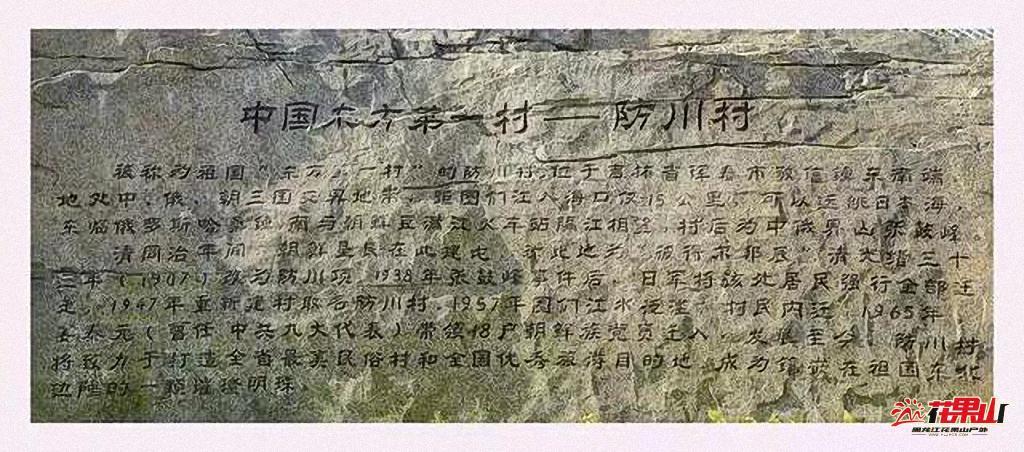 中国东方第一村——防川村
被称为祖国"东方第一村"的防川村,位于吉林省珲春市敬信镇东南端,
地处中、俄、朝三国交界地带,距图们江入海口仅15公里,可以远眺日本海,
东临俄罗斯哈桑镇,南与朝鲜豆满江火车站隔江相望,村后为中俄界山张鼓峰。
清同治年间,朝鲜垦民在此建屯,称此地为"
三年(1907)改为防川项,1938年张鼓峰事件后,日军将该处居民强行全部迁
走,1947年重新建村取名防川村,1957年图们江水泛滥,村民内迁,1965年
元(曾任中共九大代表)带领18户朝鲜族党员迁入,发展至今,防川村
将致力于打造全省最美民俗村和全国优秀旅游目的地,成为镶嵌在祖国东北
边陲的一颗璀璨明珠。
花果山
黑龙江花果山户外